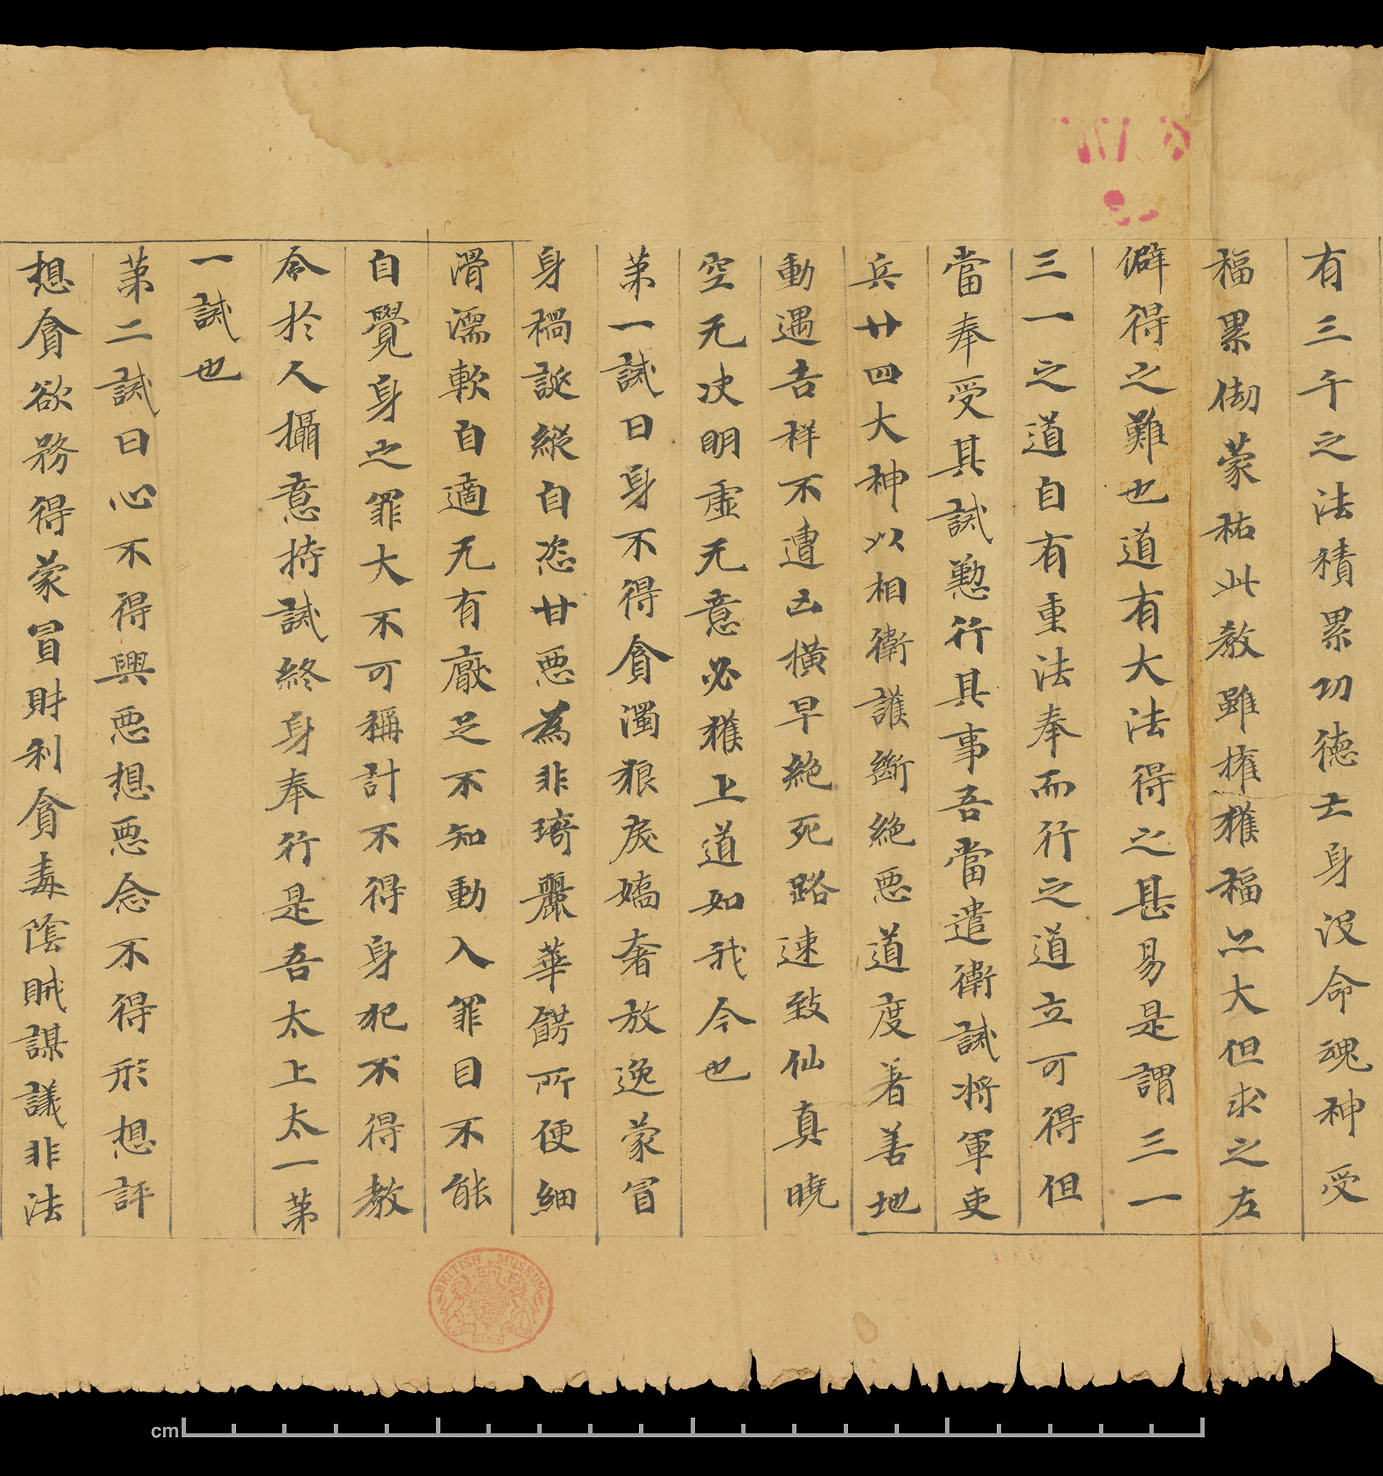 有三千之法積累功德亡身沒命魂神受
福累劫蒙祐此教雖擁獲福亦大但求之左
僻得之難也道有大法得之甚易是謂三一
三一之道自有重法奉而行之道立可得但
當奉受其誡懃行其事吾當遣衛誡將軍吏
兵廿四大神以相衛護斷絕惡道度著善地
動遇吉祥不遭凶橫早絕死路速致仙真曉
空无决明虛无意必獲上道如我今也
第一誡曰身不得貪濁狠戾嬌奢放逸蒙冒
身禍誕縱自恣甘惡為非琦麗華餝所便細
滑濡軟自適无有厭足不知動入罪目不能
自覺身之罪大不可稱計不得身犯不得教
令於人攝意持誡終身奉行是吾太上太一第
一誡也
第二誡曰心不得興惡想惡念不得形想評
想貪欲務得蒙冒財利貪毒陰賊謀議非法
BRITISH MUSEUM
cm